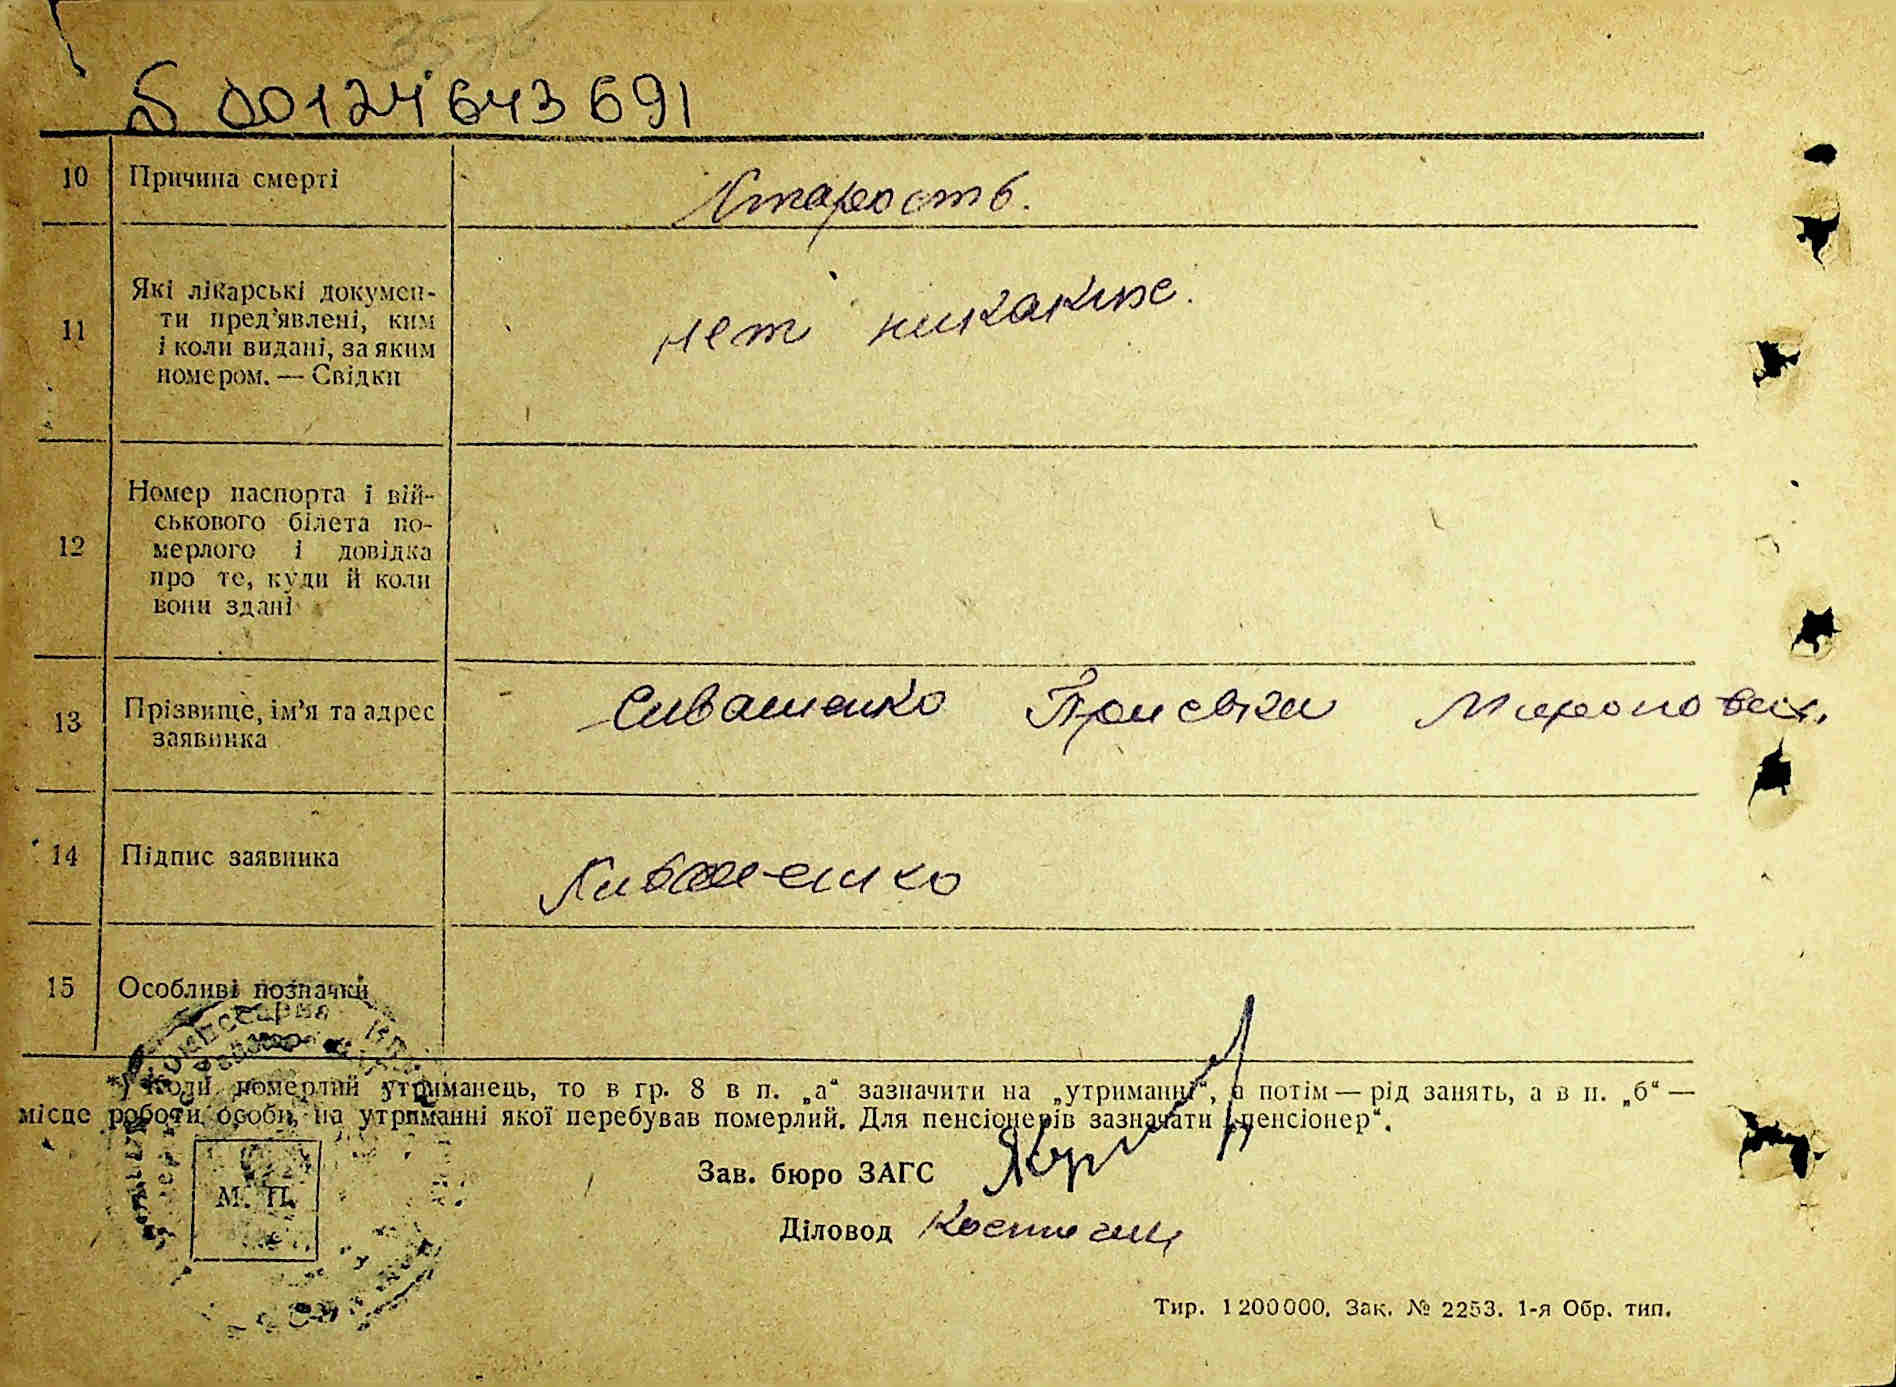 Б 00124643691
10 Причина смерті Старость.
11 Які лікарські документи пред'явлені, ким і коли видані, за яким номером. — Свідки
нет никаких.
12 Номер паспорта і військового білета померлого і довідка про те, куди й коли вони здані
13 Прізвище, ім'я та адрес заявника
Сиващенко Мироновн.
14 Підпис заявника
15 Особливі позначки
*) Коли померлий утриманець, то в гр. 8 в п. „а“ зазначити на „утриманні“, а потім — рід занять, а в п. „б“ —
місце роботи особи, на утриманні якої перебував померлий. Для пенсіонерів зазначати „пенсіонер“.
М. П.
Зав. бюро ЗАГС
Діловод
Тир. 1200000. Зак. № 2253. 1-я Обр. тип.